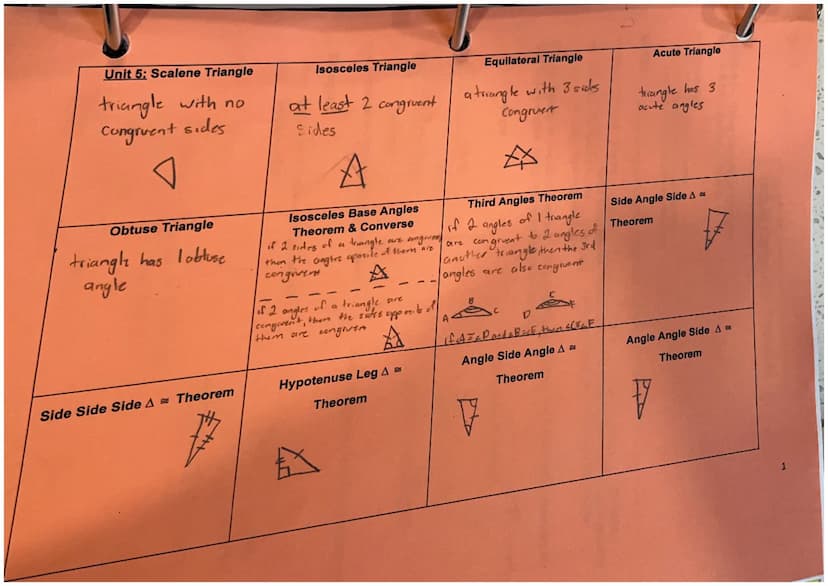 Unit 5: Scalene Triangle
triangle with no
congruent sides
Isosceles Triangle
at least 2 congruent
sides
Equilateral Triangle
a triangle with 3 sides
congruent
Acute Triangle
triangle has 3
acute angles
Obtuse Triangle
triangle has 1 obtuse
angle
Isosceles Base Angles
Theorem & Converse
if 2 sides of a triangle are congruent
then the angles opposite of them are
congruent
if 2 angles of a triangle are
congruent, then the sides opposite of
them are congruent
Third Angles Theorem
if 2 angles of 1 triangle
are congruent to 2 angles of
another triangle, then the 3rd
angles are also congruent
B
A C
E
D F
if ∠A ≅ ∠D and ∠B ≅ ∠E, then ∠C ≅ ∠F
Side Angle Side Δ ≅
Theorem
Side Side Side Δ ≅ Theorem
Hypotenuse Leg Δ ≅
Theorem
Angle Side Angle Δ ≅
Theorem
Angle Angle Side Δ ≅
Theorem
1